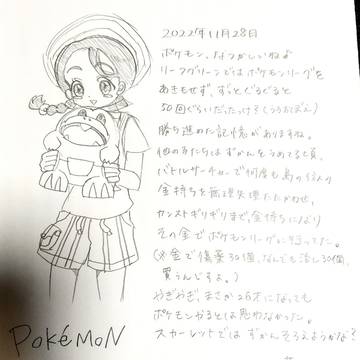 2022年11月28日
ポケモン、なつかしいねぇ
リーフグリーンではポケモンリーグを
あきもせず、ずっとぐるぐると
50回ぐらいだったっけ?(うろおぼえ)
勝ち進めた記憶がありますね。
他の子たちはずかんをうめてる頃、
バトルサーチャーで何度も島の住人の
金持ちを無理矢理たたかわせ、
カンストギリギリまで金持ちになり
その金でポケモンリーグに行ってた。
(※金で傷薬30個、なんでも治し30個、
買うんですよ。)
やぎやぎ、まさか26才になっても
ポケモンやるとは思わなかった。
スカーレットではずかんそろえようかな?
POKéMON